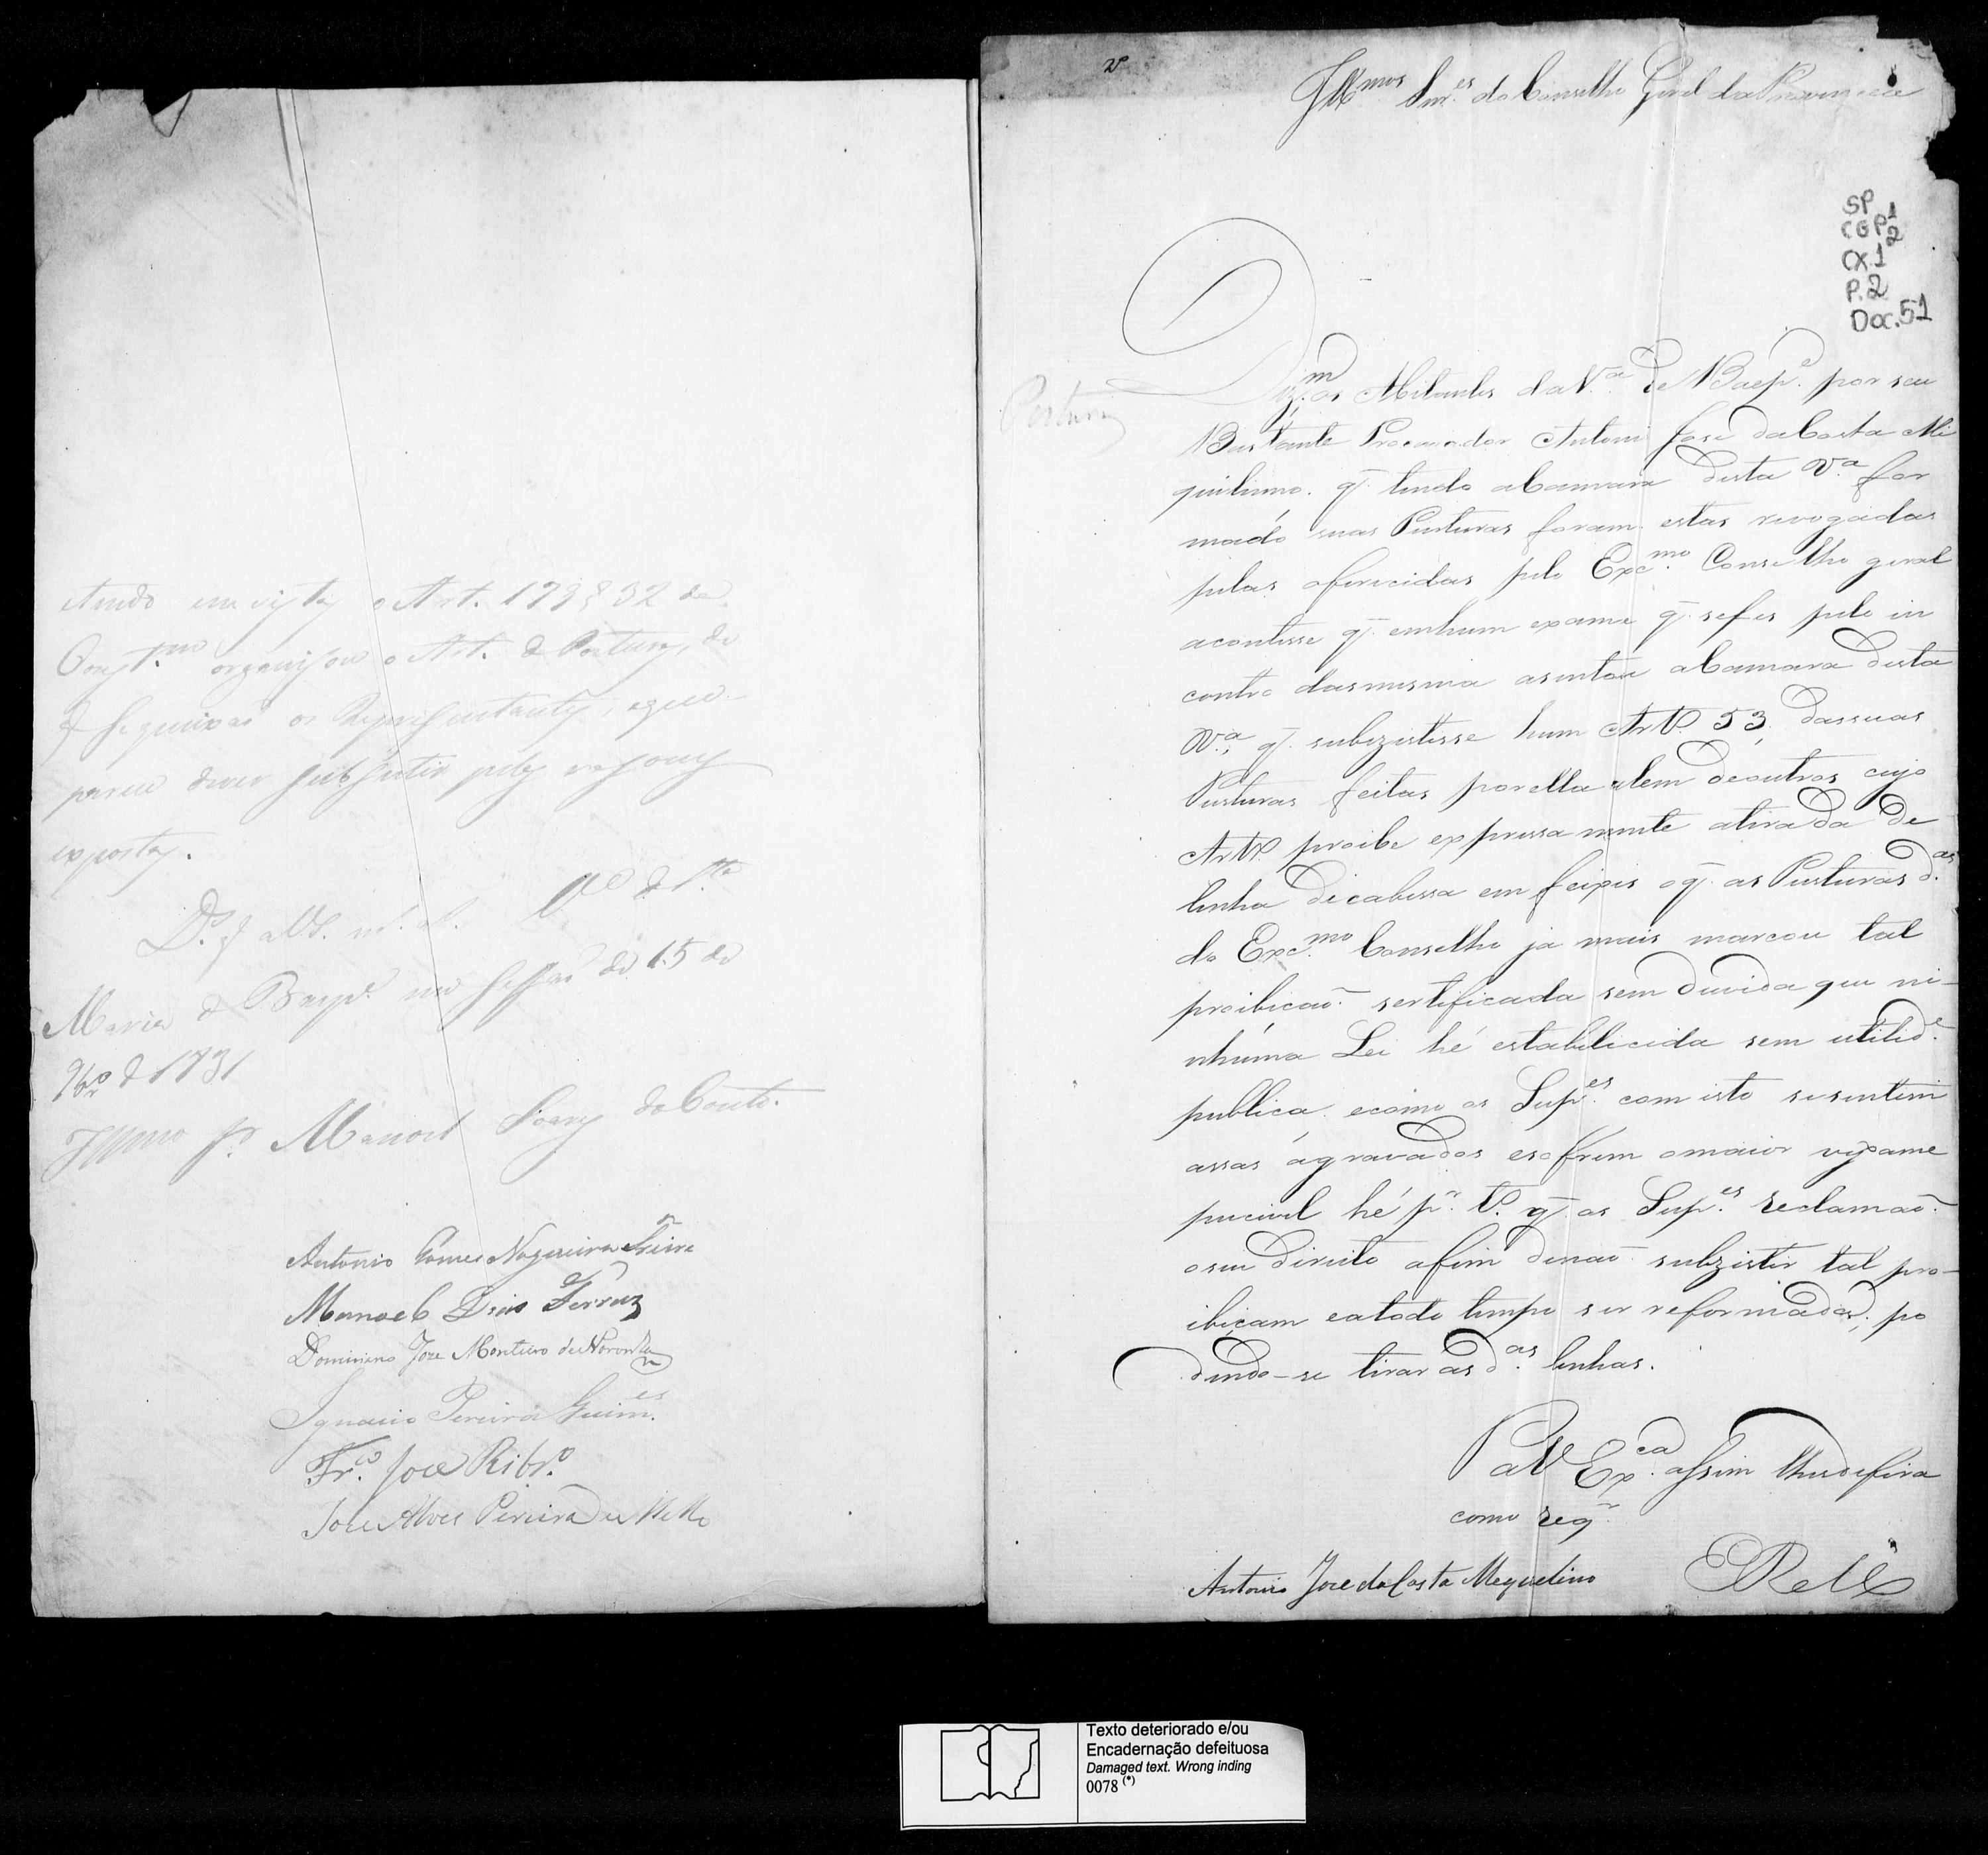 tendo em vista o Art. 179 § 32 da
Const.am organisou o Art. de Postura, de
q se queixão os Representantes, e que
parece dever subsistir pelas rasoens
expostas.
D.s g.e a VS. m.s a.s V.a de S.ta
Maria de Baep.di na Sessão de 15 de
9br.o de 1831
Illmo Sr. Manoel Soares do Couto.
Antonio Gomes Nogueira Freire
Manoel Dias Ferraz
Dominiano Joze Monteiro de Noronha
Ignacio Pereira Guim.es
Fr.co Joze Ribr.o
Joze Alves Pereira de Mello
Ill.mos Snr.es do Conselho Geral da Provincia
SP
CGP 1
2
CX.1
P.2
Doc.51
Postura
Diz.m os Abitantes da V.a de Baep.e por seu
Bastante Procurador Antonio Jose da Costa Mi
quilinno. q. tendo a Camara desta V.a for
mado suas Pusturas foram estas revogadas
pelas oferecidas pelo Exc.mo Conselho geral
acontesse q. em hum exame q. se fes pelo in
contro das mesma asentou a Camara desta
V.a, q. subezistisse hum Art.o 53, das suas
Pusturas feitas por ella alem de outros cujo
Art.o proibe expressa mente a tirada de
lenha de cabessa em feixes o q. as Pusturas d.as
do Exc.mo Conselho ja mais marcou tal
proibicaõ. sertificada sem duvida que ni-
nhúma Lei hé estabelicida sem utilid.e
publica. e como os Sup.es com isto se sentem
assas ágravados e sofrem o maior vexame
pucivel hé p.r t.o q. os Sup.es reclamaõ.
o seu Direito afim de naõ subzistir tal pro-
ibiçam e a todo tempo ser reformada, po
dendo-se tirar as d.as lenhas.
P a V Ex.ca assim lhes defira
como req.r
E R M.ce
Antonio Joze da Costa Mequelino
Texto deteriorado e/ou
Encadernação defeituosa
Damaged text. Wrong inding
0078 (*)